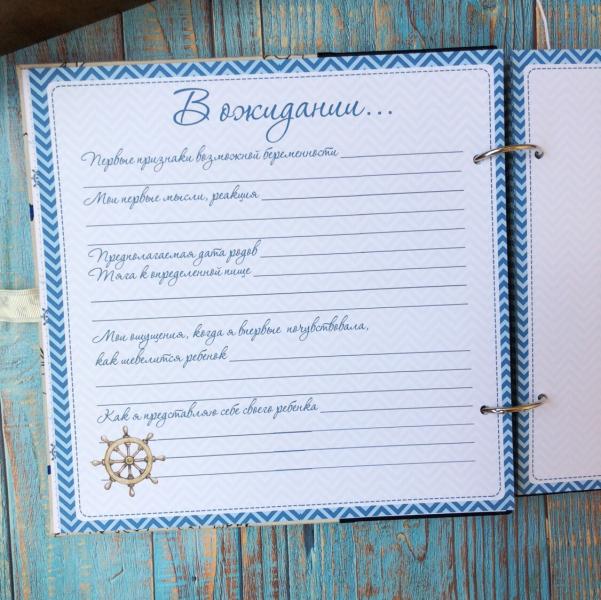 В ожидании...
Первые признаки возможной беременности
Мои первые мысли, реакция
Предполагаемая дата родов
Тяга к определенной пище
Мои ощущения, когда я впервые почувствовала,
как шевелится ребенок
Как я представляю себе своего ребенка